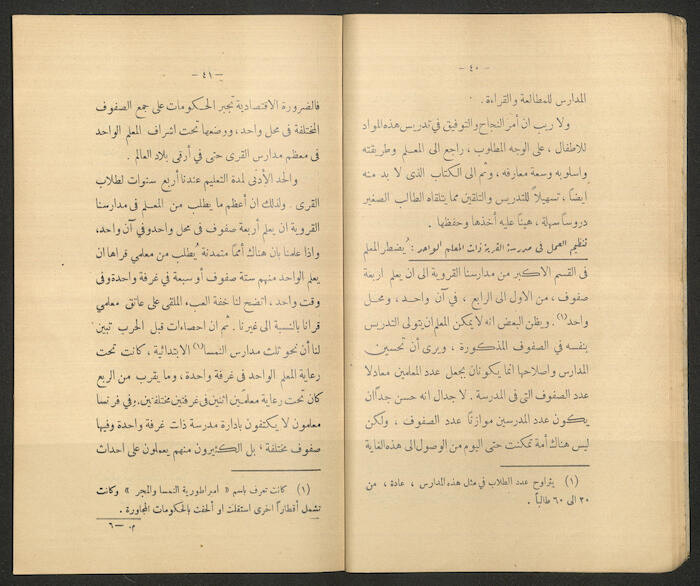 — ٤٠ —
المدارس للمطالعة والقراءة .
ولا ريب ان أمر النجاح والتوفيق في تدريس هذه المواد
للاطفال ، على الوجه المطلوب ، راجع الى المعلم وطريقته
واسلوبه وسعة معارفه ، وثم الى الكتاب الذى لا بد منه
ايضاً ، تسهيلاً للتدريس والتلقين مما يتلقاه الطالب الصغير
دروساً سهلة ، هيناً عليه أخذها وحفظها .
تنظيم العمل فى مدرسة القرية ذات المعلم الواحد : يُضطر المعلم
فى القسم الاكبر من مدارسنا القروية الى ان يعلم اربعة
صفوف ، من الاول الى الرابع ، في آن واحد ، ومحل
واحد(١) . ويظن البعض انه لا يمكن المعلم ان يتولى التدريس
بنفسه في الصفوف المذكورة ، ويرى أن تحسين
المدارس واصلاحها انما يكونان بجعل عدد المعلمين معادلا
عدد الصفوف التى فى المدرسة . لا جدال انه حسن جداً ان
يكون عدد المدرسين موازناً عدد الصفوف ، ولكن
ليس هناك أمة تمكنت حتى اليوم من الوصول الى هذه الغاية
(١) يتراوح عدد الطلاب في مثل هذه المدارس ، عادة ، من
٣٠ الى ٦٠ طالباً .
— ٤١ —
فالضرورة الاقتصادية تجبر الحكومات على جمع الصفوف
المختلفة فى محل واحد ، ووضعها تحت اشراف المعلم الواحد
فى معظم مدارس القرى حتى في أرقى بلاد العالم .
والحد الأدنى لمدة التعليم عندنا أربع سنوات لطلاب
القرى . ولذلك ان أعظم ما يطلب من المعلم فى مدارسنا
القروية ان يعلم أربعة صفوف فى محل واحد وفي آن واحد ،
واذا علمنا بان هناك أمماً متمدنة يُطلب من معلمي قراها ان
يعلم الواحد منهم ستة صفوف أو سبعة في غرفة واحدة وفى
وقت واحد ، اتضح لنا خفة العبء الملقى على عاتق معلمي
قرانا بالنسبة الى غيرنا . ثم ان احصاءات قبل الحرب تبين
لنا أن نحو ثلث مدارس النمسا(١) الابتدائية ، كانت تحت
رعاية المعلم الواحد فى غرفة واحدة ، وما يقرب من الربع
كان تحت رعاية معلمين اثنين فى غرفتين مختلفتين . وفي فرنسا
معلمون لا يكتفون بادارة مدرسة ذات غرفة واحدة وفيها
صفوف مختلفة ، بل الكثيرون منهم يعملون على احداث
(١) كانت تعرف باسم « امبراطورية النمسا والمجر » وكانت
تشمل أقطاراً اخرى استقلت او ألحقت بالحكومات المجاورة .
م — ٦